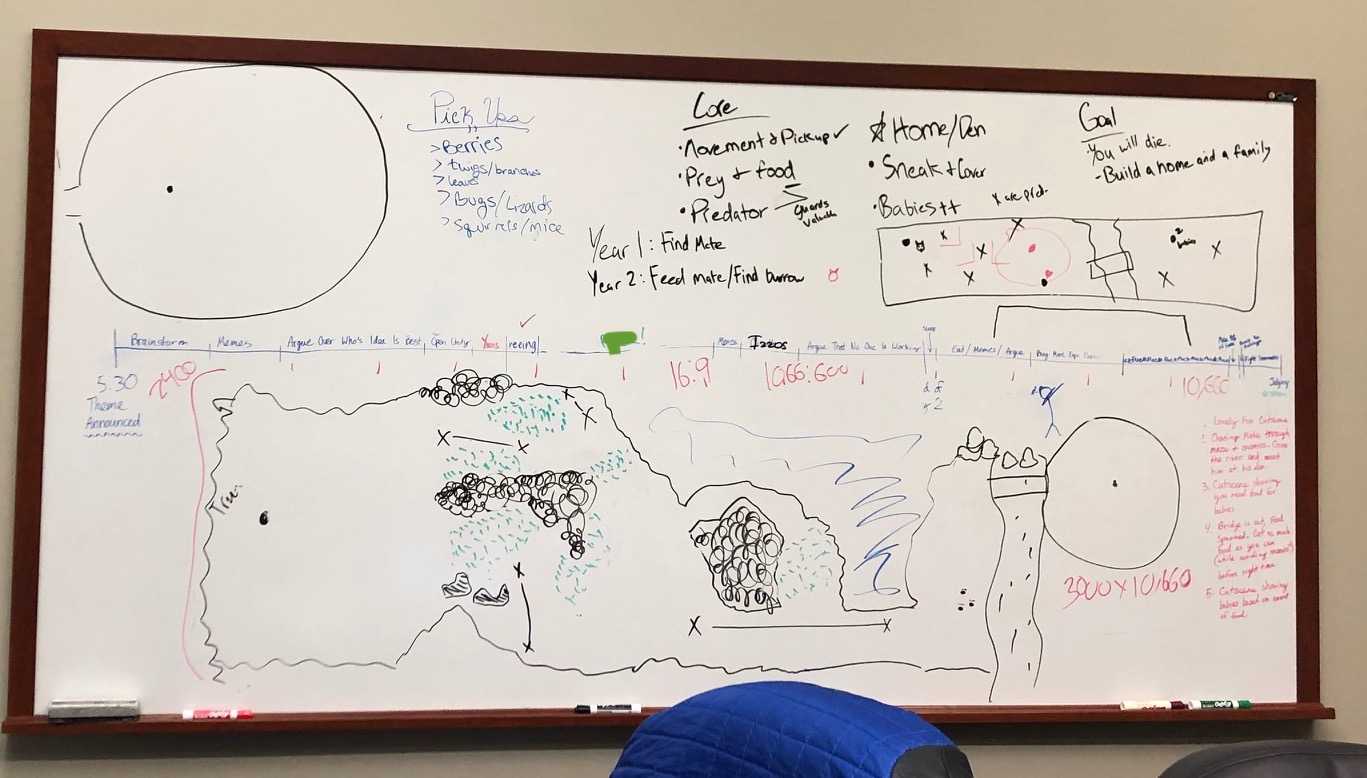 Pick Ups
>Berries
>twigs/branches
>leaves
>Bugs/Lizards
>Squirrels/mice
Core
•Movement & Pickup ✓
•Prey + food
•Predator
Guards
Home/Den
•Sneak + Cover
•Babies ++
Goal
•You will die.
-Build a home and a family
X are pred.
Year 1: Find Mate
Year 2: Feed mate/Find burrow
2
babies
Brainstorm
Memes
Argue Over Who's Idea Is Best
Open Unity
Memes
Argue That No One Is Working
Eat/Memes/Argue
Judging
5:30
Theme
Announced
2400
16:9
1066:600
10,660
Tree
3000 x 10,660
1. Lonely Fox Cutscene
2. Chasing Mate through
maze + enemies. Cross
the river and meet
him at his den.
3. Cutscene showing
you need food for
babies
4. Bridge is out, Food
Spawned. Get as much
food as you can
(while avoiding enemies)
before night time
5. Cutscene showing
babies based on amount
of food